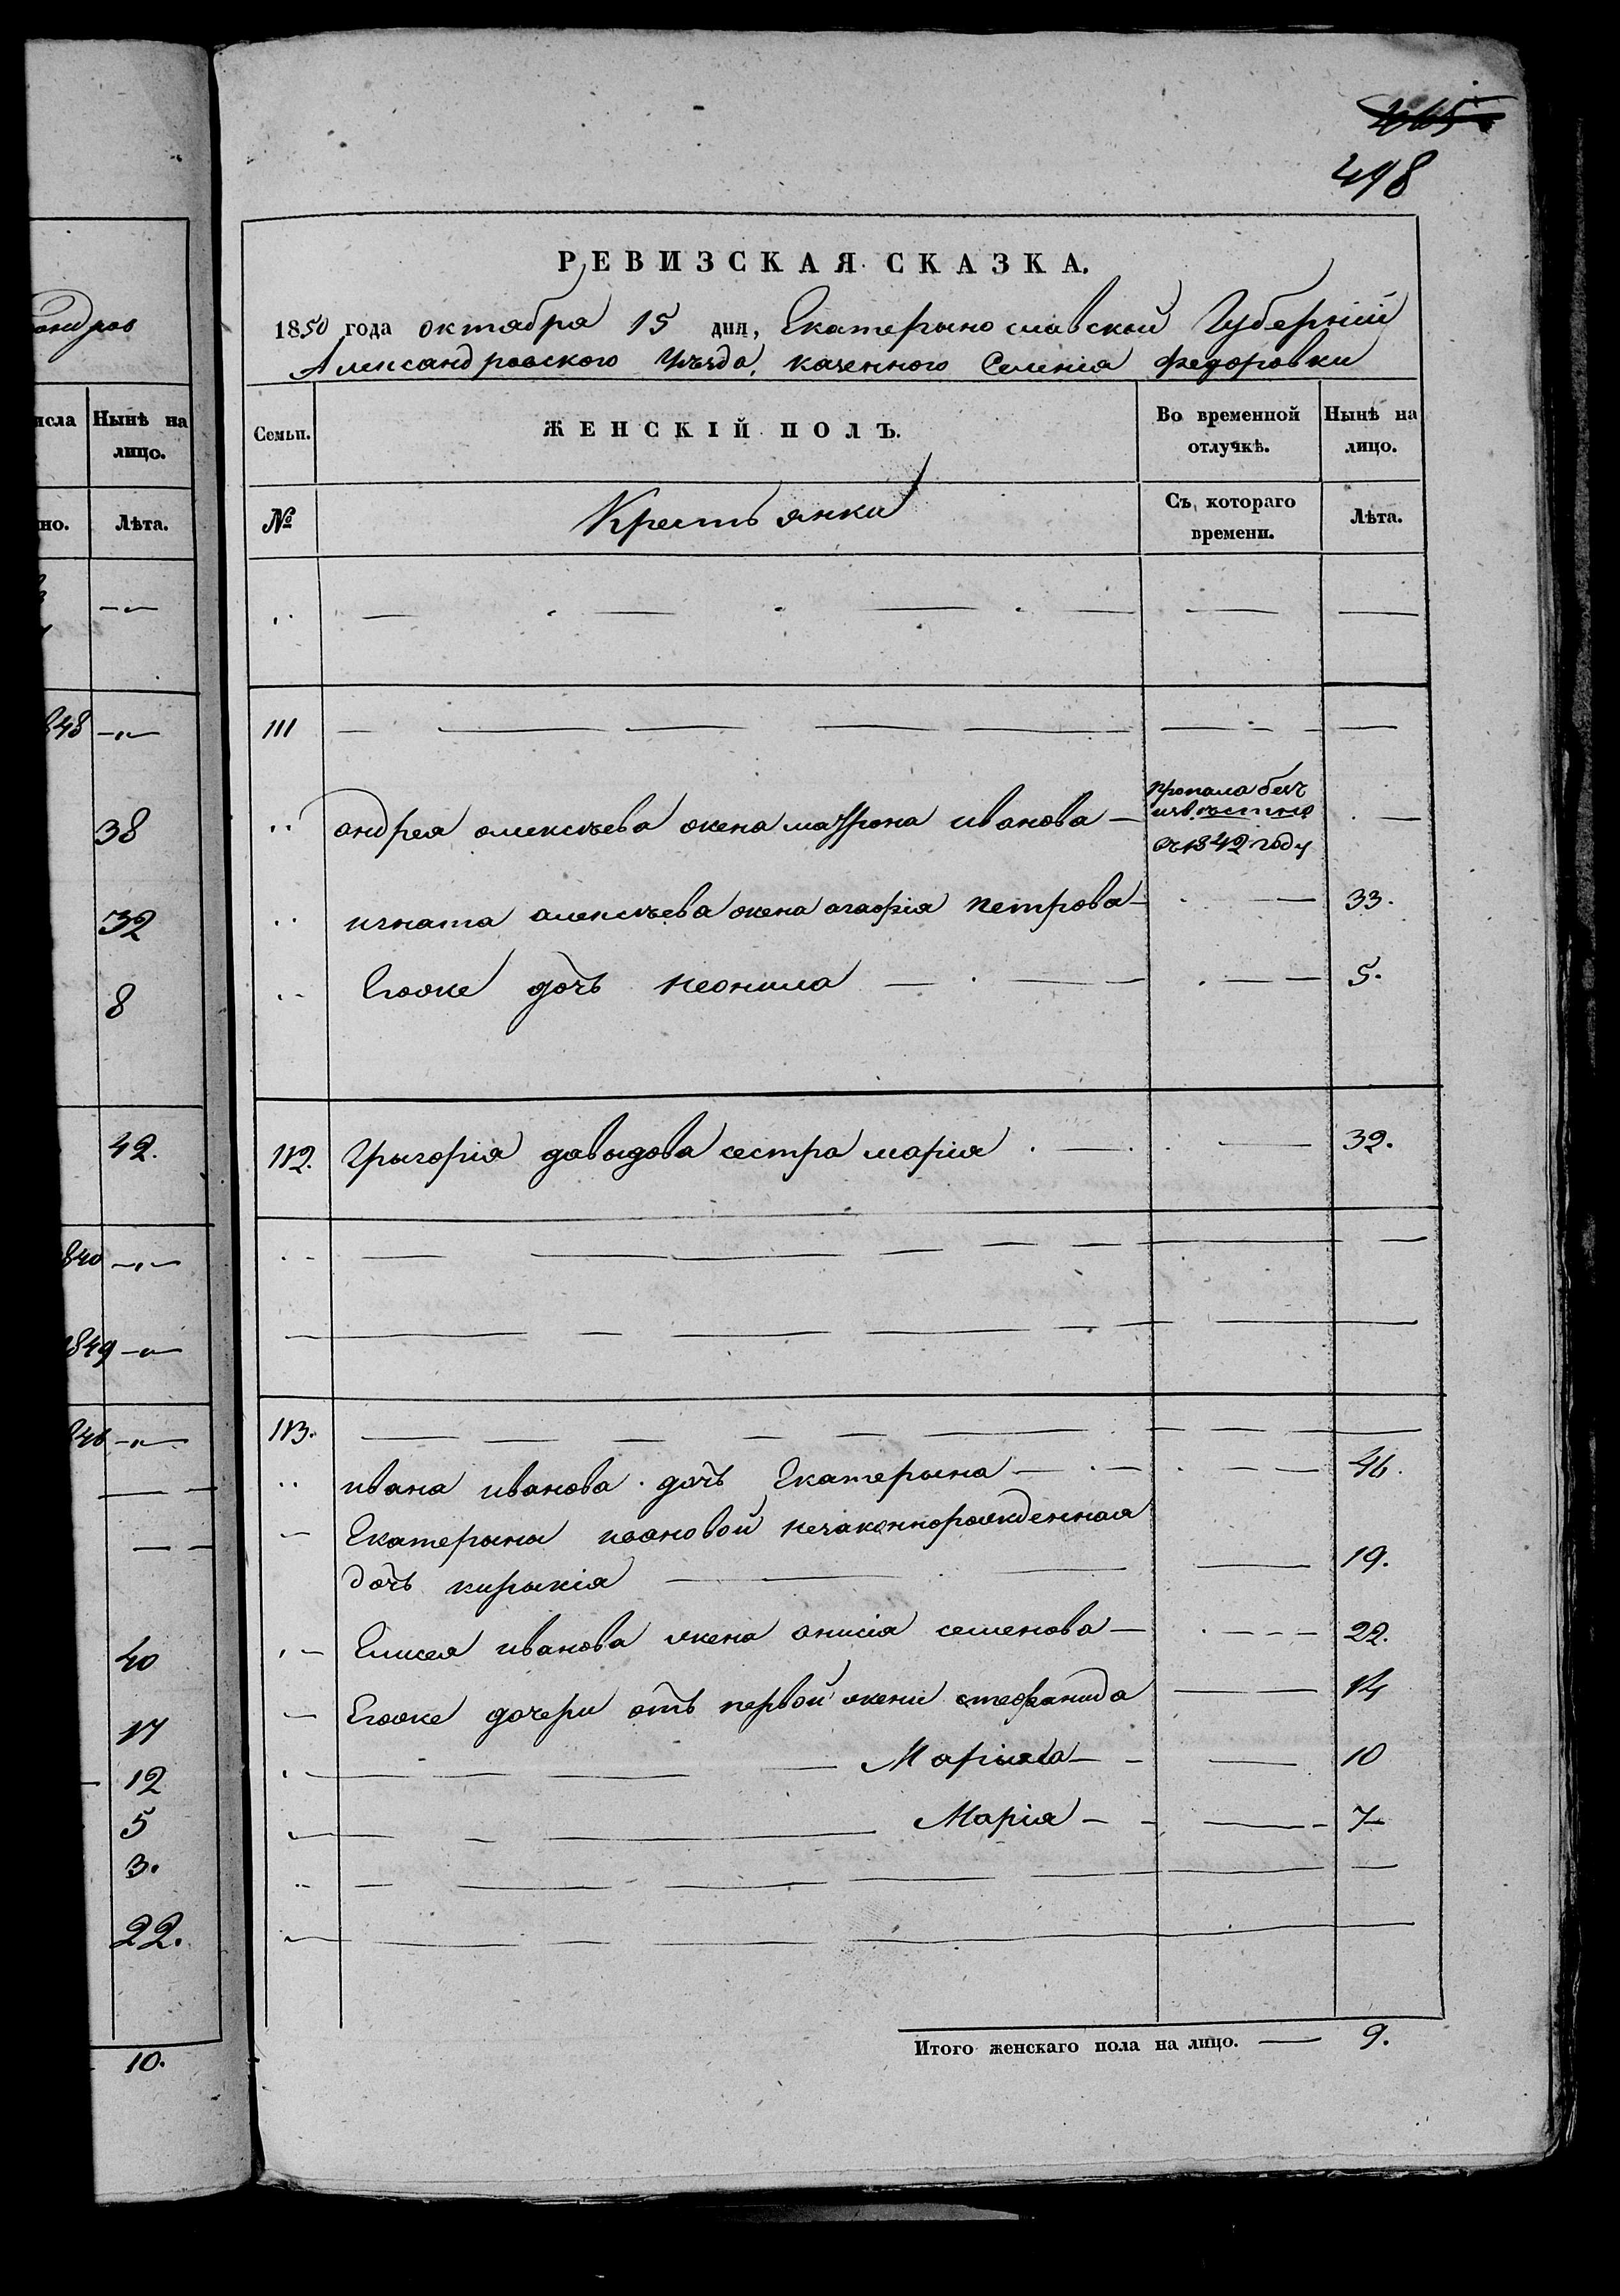 498
РЕВИЗСКАЯ СКАЗКА.
1850 года октября 15 дня, Екатерынославской Губерніи
Александровского Уѣзда, казенного Селенія Федоровки
Семьи.
ЖЕНСКІЙ ПОЛЪ.
Во временной отлучкѣ.
Нынѣ на лицо.
№
Крестьянки
Съ котораго времени.
Лѣта.
111
андрея алексѣева жена матрона иванова — пропала безъ извѣстно съ 1842 году
игната алексѣева жена агафія петрова 33.
Егоже дочь неонила 5.
112. Григорія давыдова сестра марія 32.
113.
ивана иванова дочь Екатерына 46.
Екатерыны ивановой незаконнорожденная
дочь кирыкія 19.
Елисея иванова жена анисія семенова 22.
Егоже дочери отъ первой жени стефанида 14
10
Марія 7
Итого женскаго пола на лицо. 9.
андров
исла
Нынѣ на лицо.
но.
Лѣта.
848
38
32
8
42.
840
1849
846
40
17
12
5
3.
22.
10.